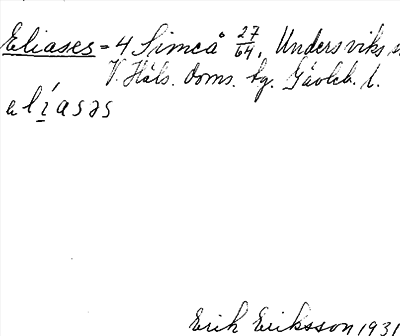 Eliases = 4 Simeå 27/64, Undersviks s
V. Häls. doms. hg. Gävleb. l.
elíasəs
Erik Eriksson 1931